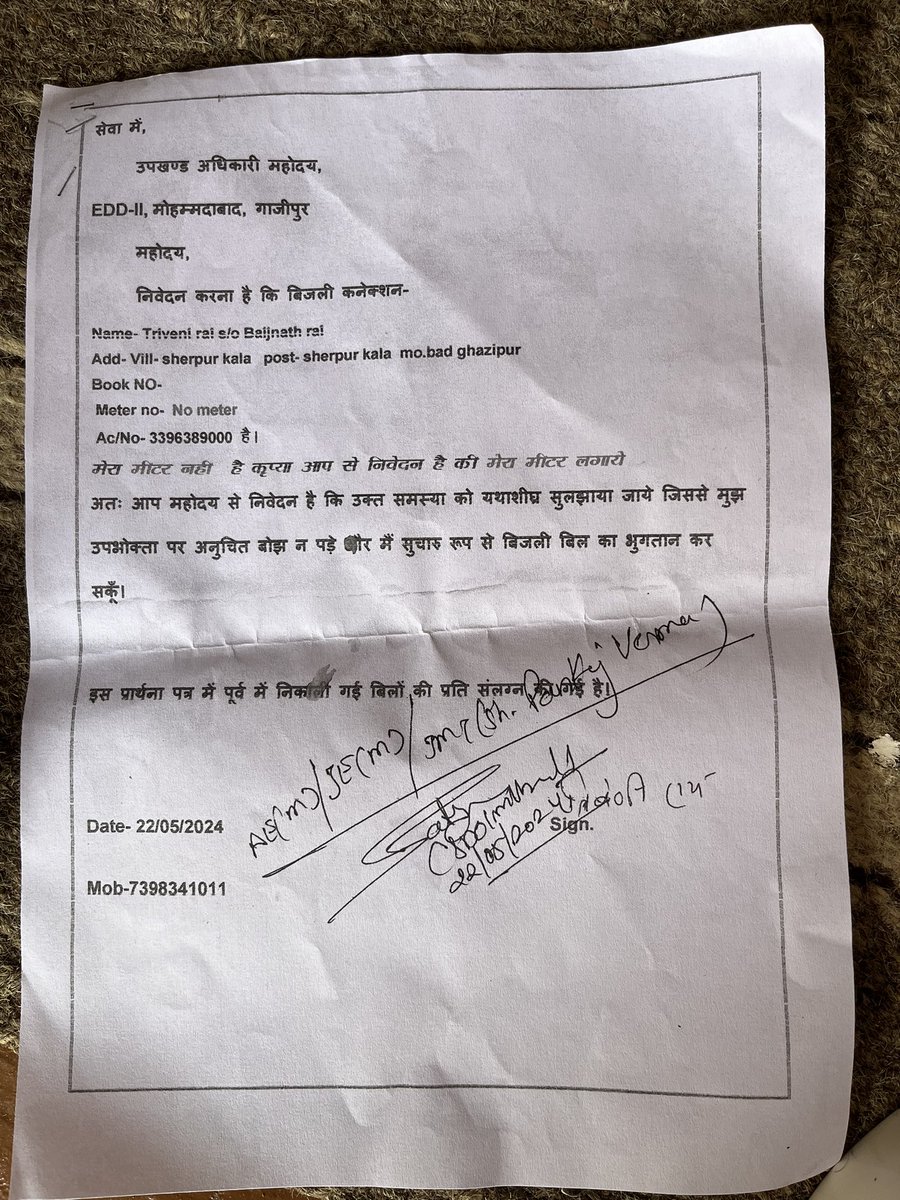 सेवा में,
उपखण्ड अधिकारी महोदय,
EDD-II, मोहम्मदाबाद, गाजीपुर
महोदय,
निवेदन करना है कि बिजली कनेक्शन-
Name- Triveni rai s/o Baijnath rai
Add- Vill- sherpur kala post- sherpur kala mo.bad ghazipur
Book NO-
Meter no- No meter
Ac/No- 3396389000 है।
मेरा मीटर नही है कृप्या आप से निवेदन है की मेरा मीटर लगाये
अतः आप महोदय से निवेदन है कि उक्त समस्या को यथाशीघ्र सुलझाया जाये जिससे मुझ
उपभोक्ता पर अनुचित बोझ न पड़े और मैं सुचारु रूप से बिजली बिल का भुगतान कर
सकूँ।
इस प्रार्थना पत्र में पूर्व में निकाली गई बिलों की प्रति संलग्न की गई है।
AE(m)/JE(m)/ (Sh. Pankaj Verma)
22/05/2024
Date- 22/05/2024 Sign.
Mob-7398341011